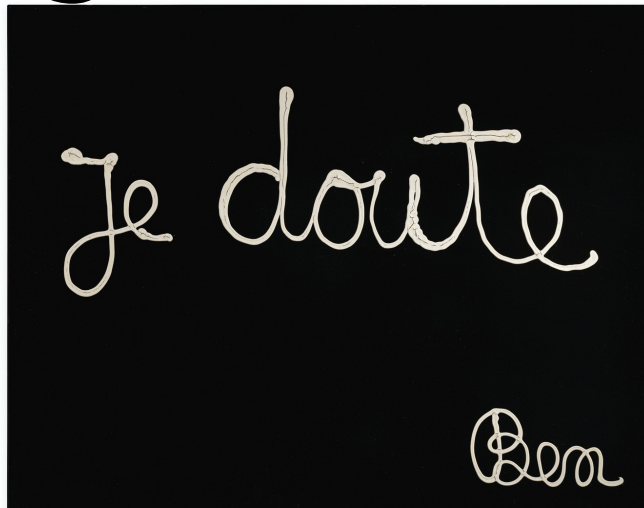 je doute
Ben